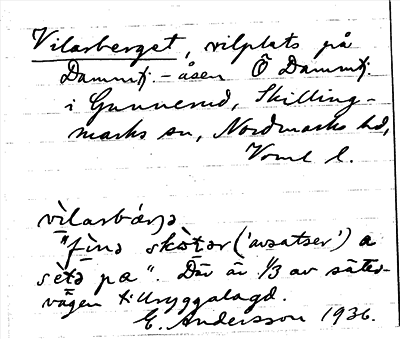 Vilarberget, vilplats på
Dammtj.-åsen Ö Dammtj.
i Gunnerud, Skilling-
marks sn, Nordmarks hd,
Vrml l.
vìlarbærjə
"fìnə skɵ̀tər ('avsatser') a
sètə pæ". Där är 1/3 av säter-
vägen tillryggalagd.
E. Andersson 1936.